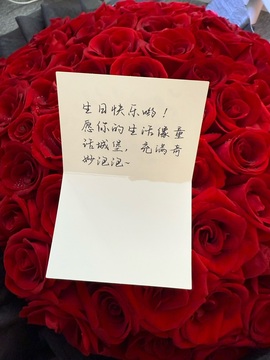 生日快乐哟！
愿你的生活像童
话城堡，充满奇
妙泡泡~